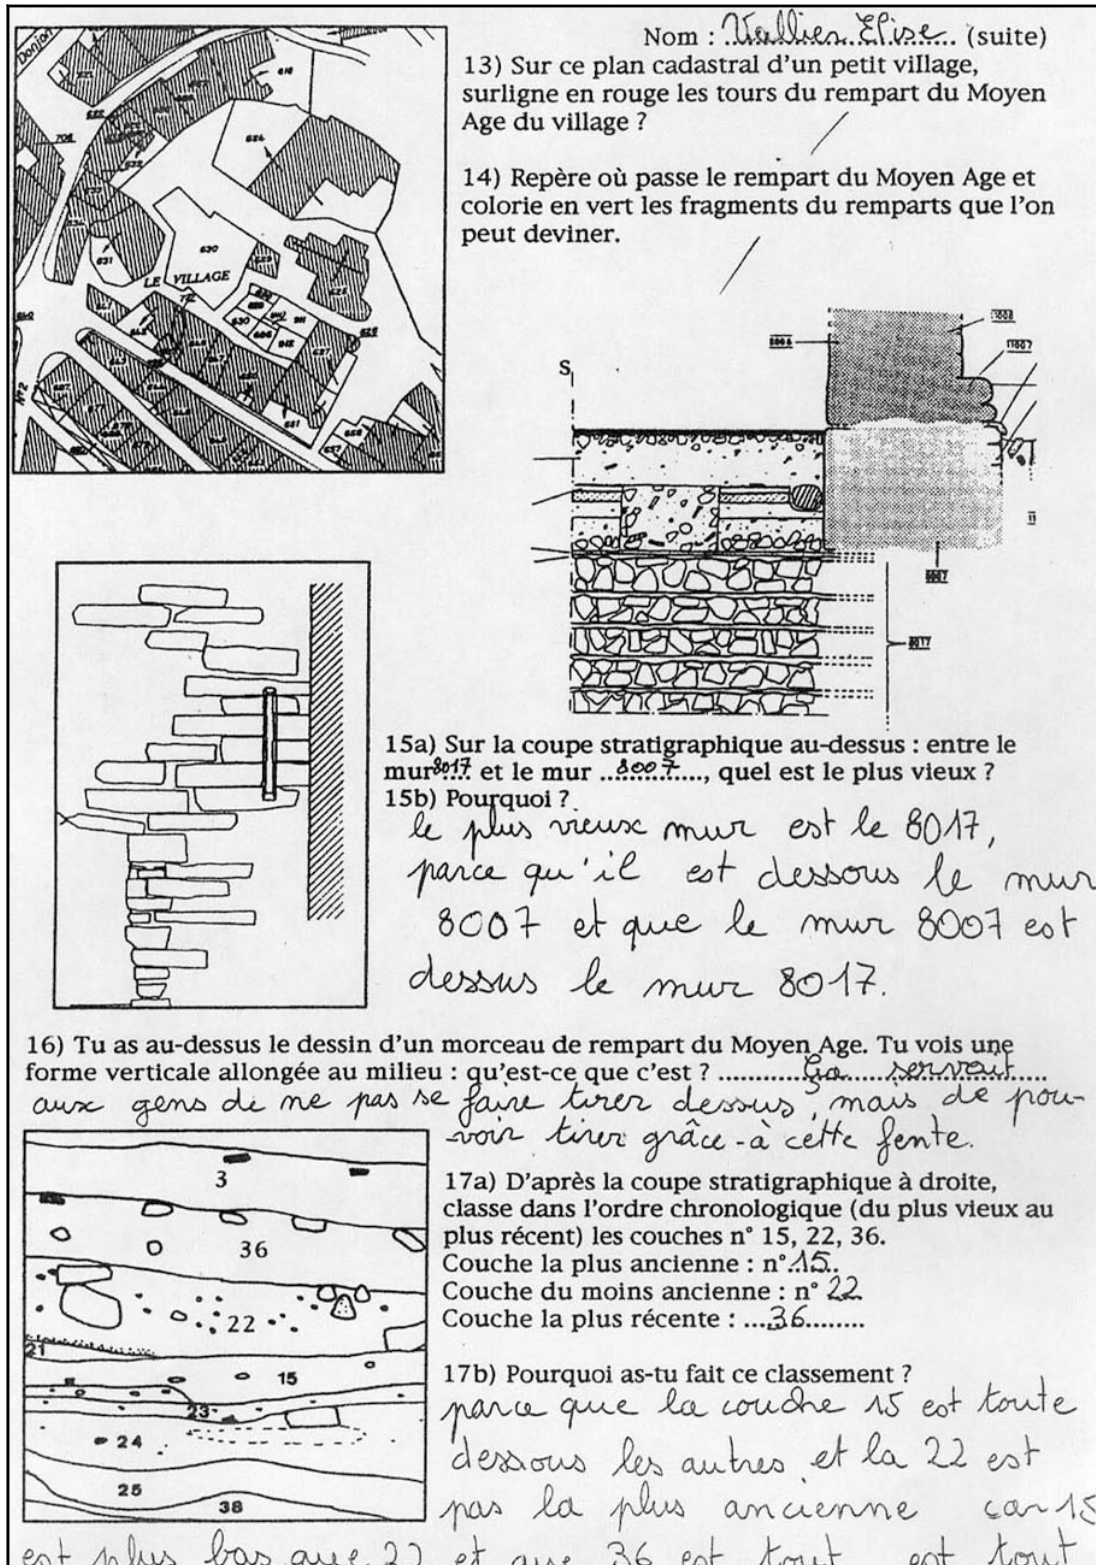 Nom : Vallier Elise (suite)
13) Sur ce plan cadastral d'un petit village,
surligne en rouge les tours du rempart du Moyen
Age du village ?
14) Repère où passe le rempart du Moyen Age et
colorie en vert les fragments du remparts que l'on
peut deviner.
Donjon
LE VILLAGE
631
630
S
8006
11007
8007
8017
15a) Sur la coupe stratigraphique au-dessus : entre le
mur 8017 et le mur ...8007..., quel est le plus vieux ?
15b) Pourquoi ?
le plus vieux mur est le 8017,
parce qu'il est dessous le mur
8007 et que le mur 8007 est
dessus le mur 8017.
16) Tu as au-dessus le dessin d'un morceau de rempart du Moyen Age. Tu vois une
forme verticale allongée au milieu : qu'est-ce que c'est ? ............Ça servait....
aux gens de ne pas se faire tirer dessus, mais de pou-
voir tirer grâce-à cette fente.
3
36
22
21
15
23
24
25
38
17a) D'après la coupe stratigraphique à droite,
classe dans l'ordre chronologique (du plus vieux au
plus récent) les couches n° 15, 22, 36.
Couche la plus ancienne : n°.15..
Couche du moins ancienne : n° 22
Couche la plus récente : ...36........
17b) Pourquoi as-tu fait ce classement ?
parce que la couche 15 est toute
dessous les autres et la 22 est
pas la plus ancienne car 15
est plus bas que 22 et que 36 est tout est tout